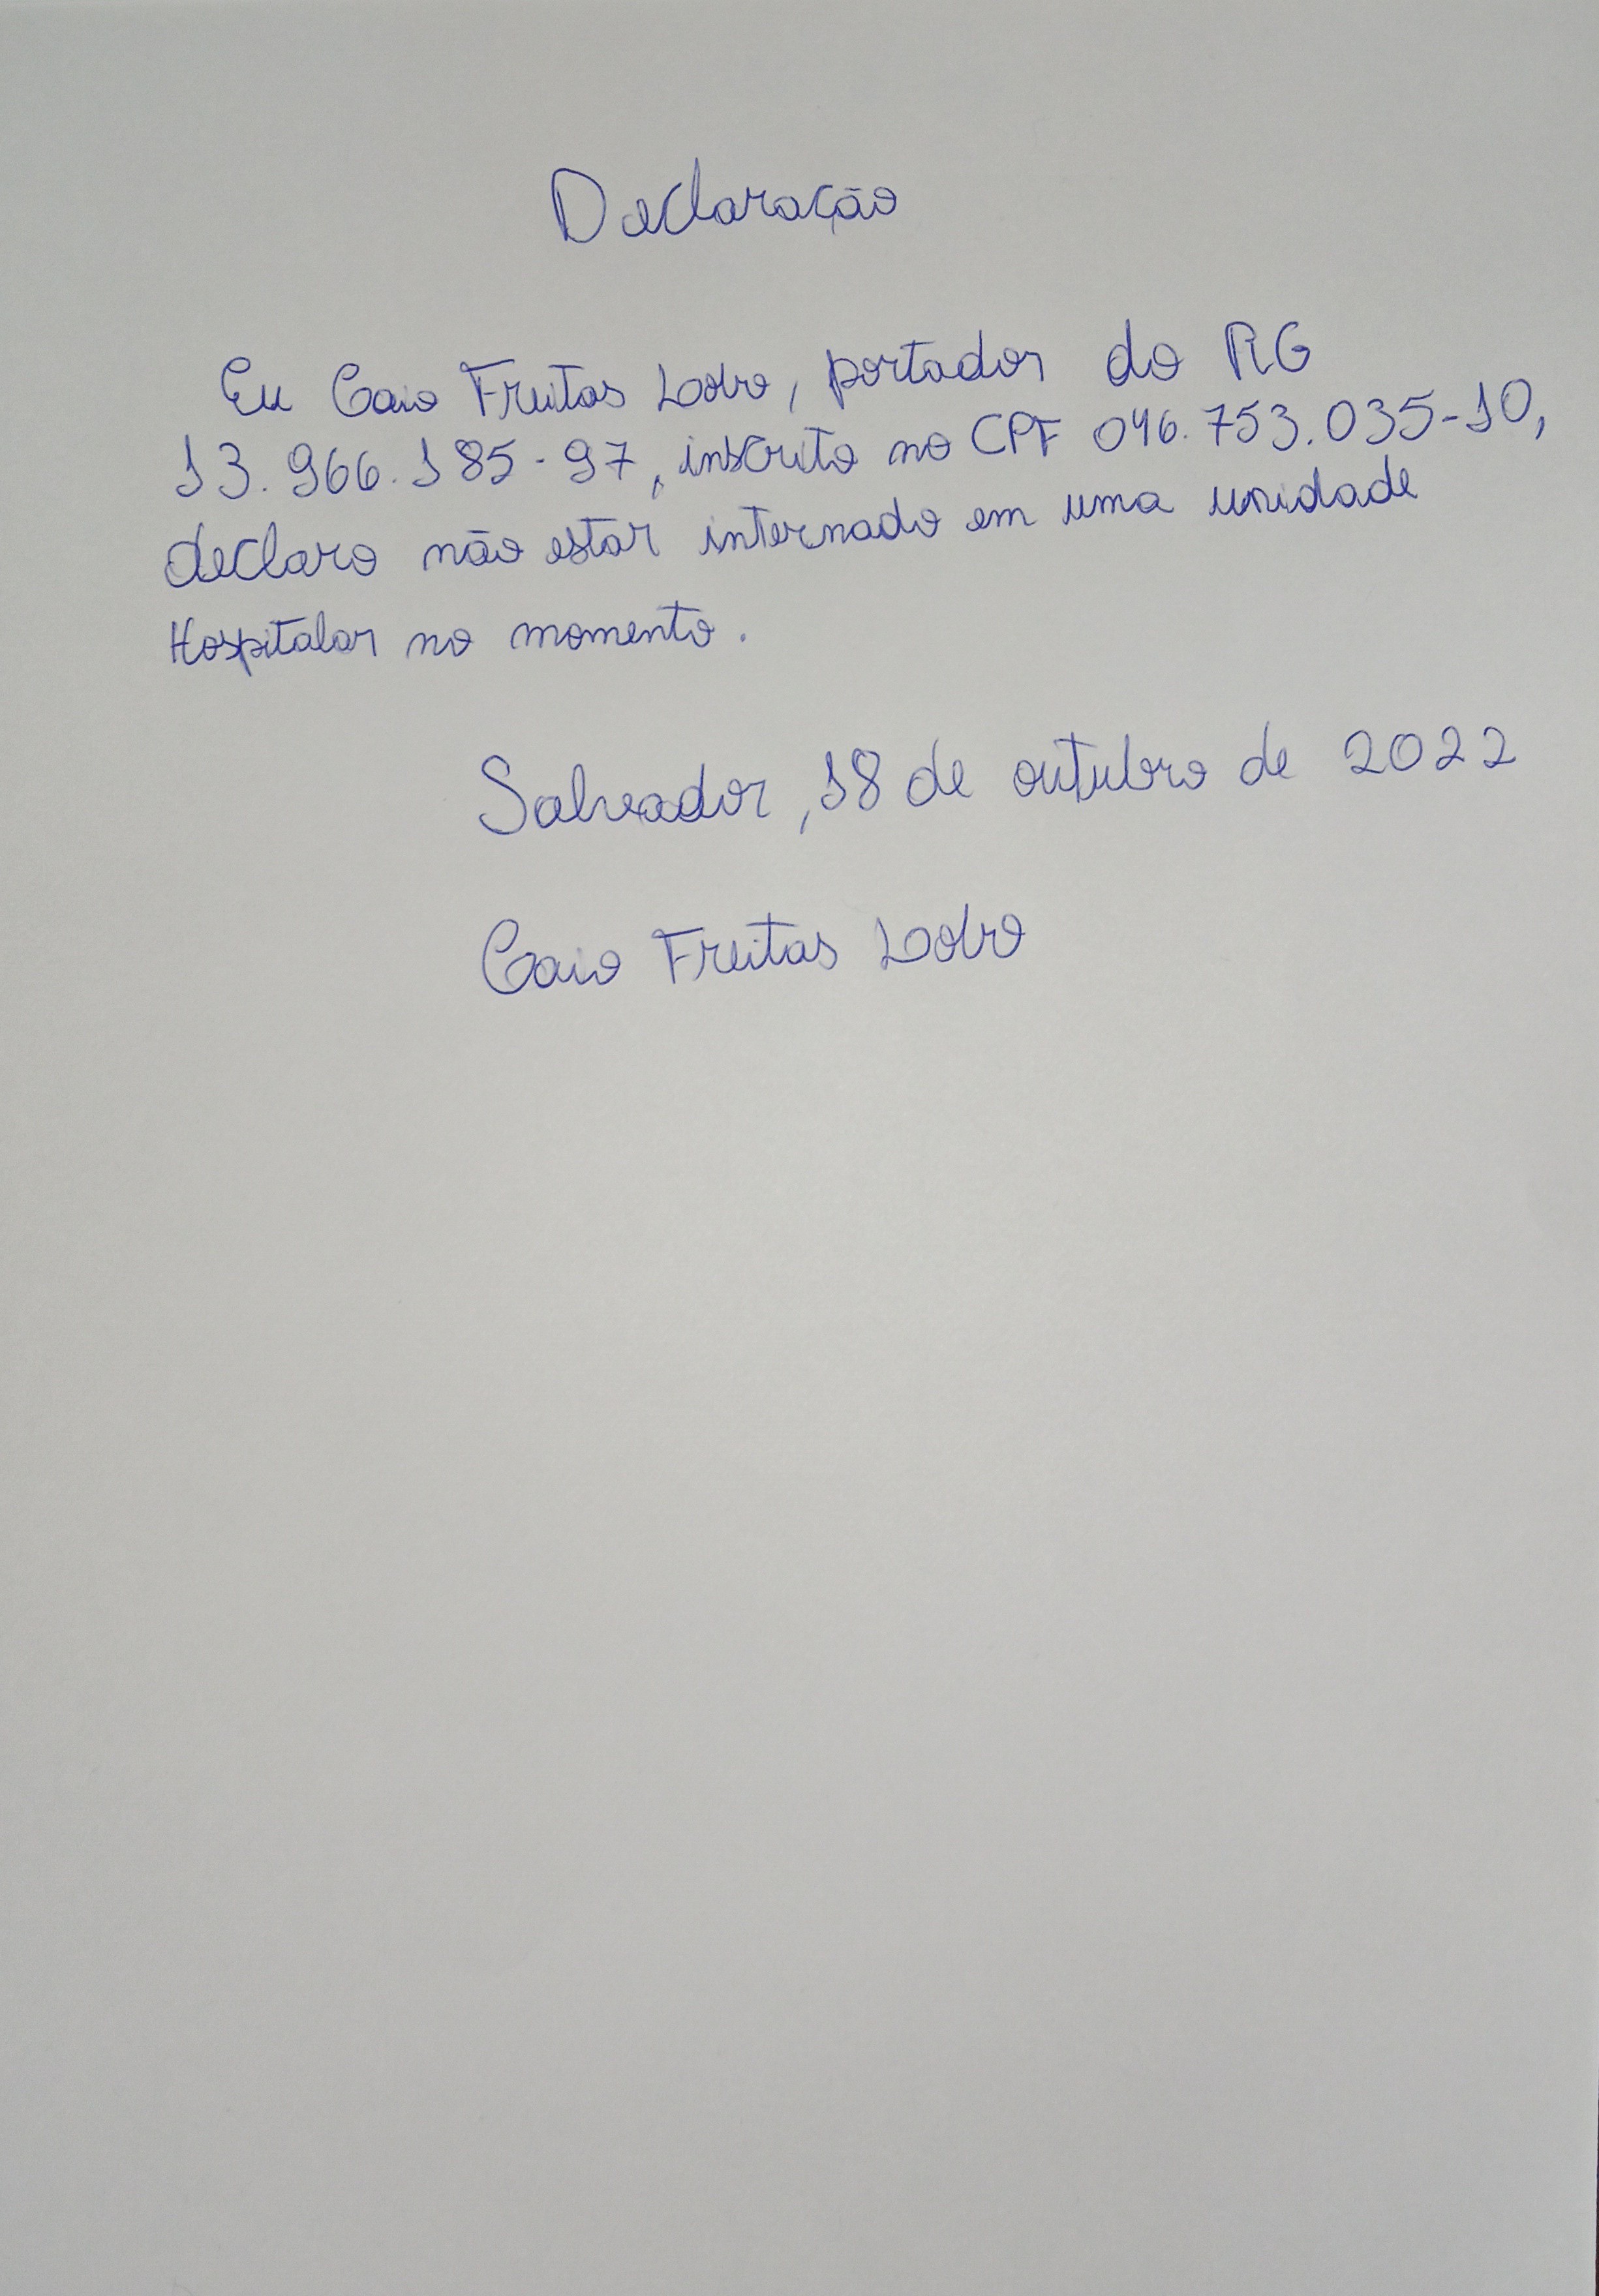 Declaração
Eu Caio Freitas Lobo, portador do RG
13.966.185-97, inscrito no CPF 046.753.035-10,
declaro não estar internado em uma unidade
Hospitalar no momento.
Salvador, 18 de outubro de 2022
Caio Freitas Lobo